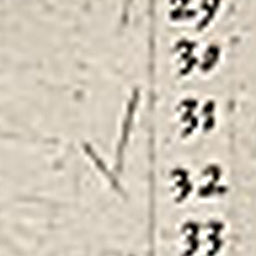 29
30
31
32
33